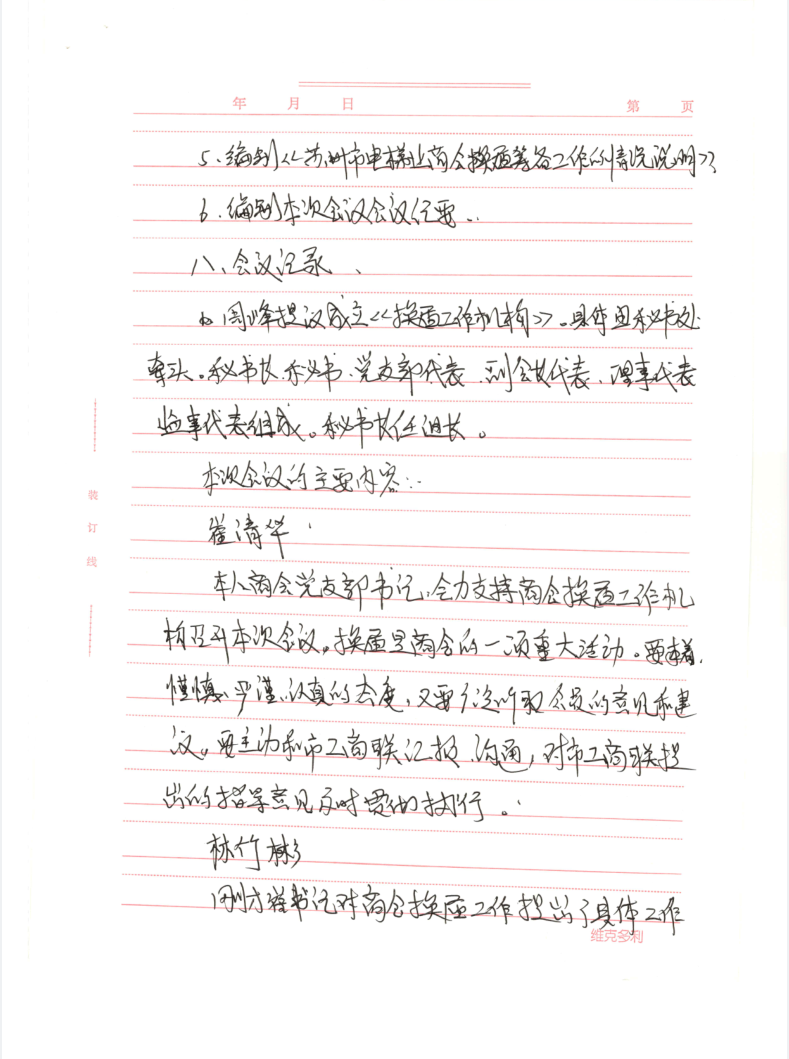 年 月 日 第 页
5、编制《苏州市电梯业商会换届筹备工作的情况说明》
6、编制本次会议会议纪要。
八、会议记录、
周峰提议成立《换届工作机构》。具体由秘书处
牵头。秘书长、秘书、党支部代表、副会长代表、理事代表
监事代表组成。秘书长任组长。
本次会议的主要内容:
崔清华:
本人商会党支部书记,全力支持商会换届工作机
构召开本次会议。换届是商会的一项重大活动。要本着
谨慎、严谨、认真的态度,又要广泛听取会员的意见和建
议。要主动和市工商联汇报、沟通,对市工商联提
出的指导意见及时贯彻执行。
林竹彬
刚才崔书记对商会换届工作提出了具体工作
装
订
线
维克多利